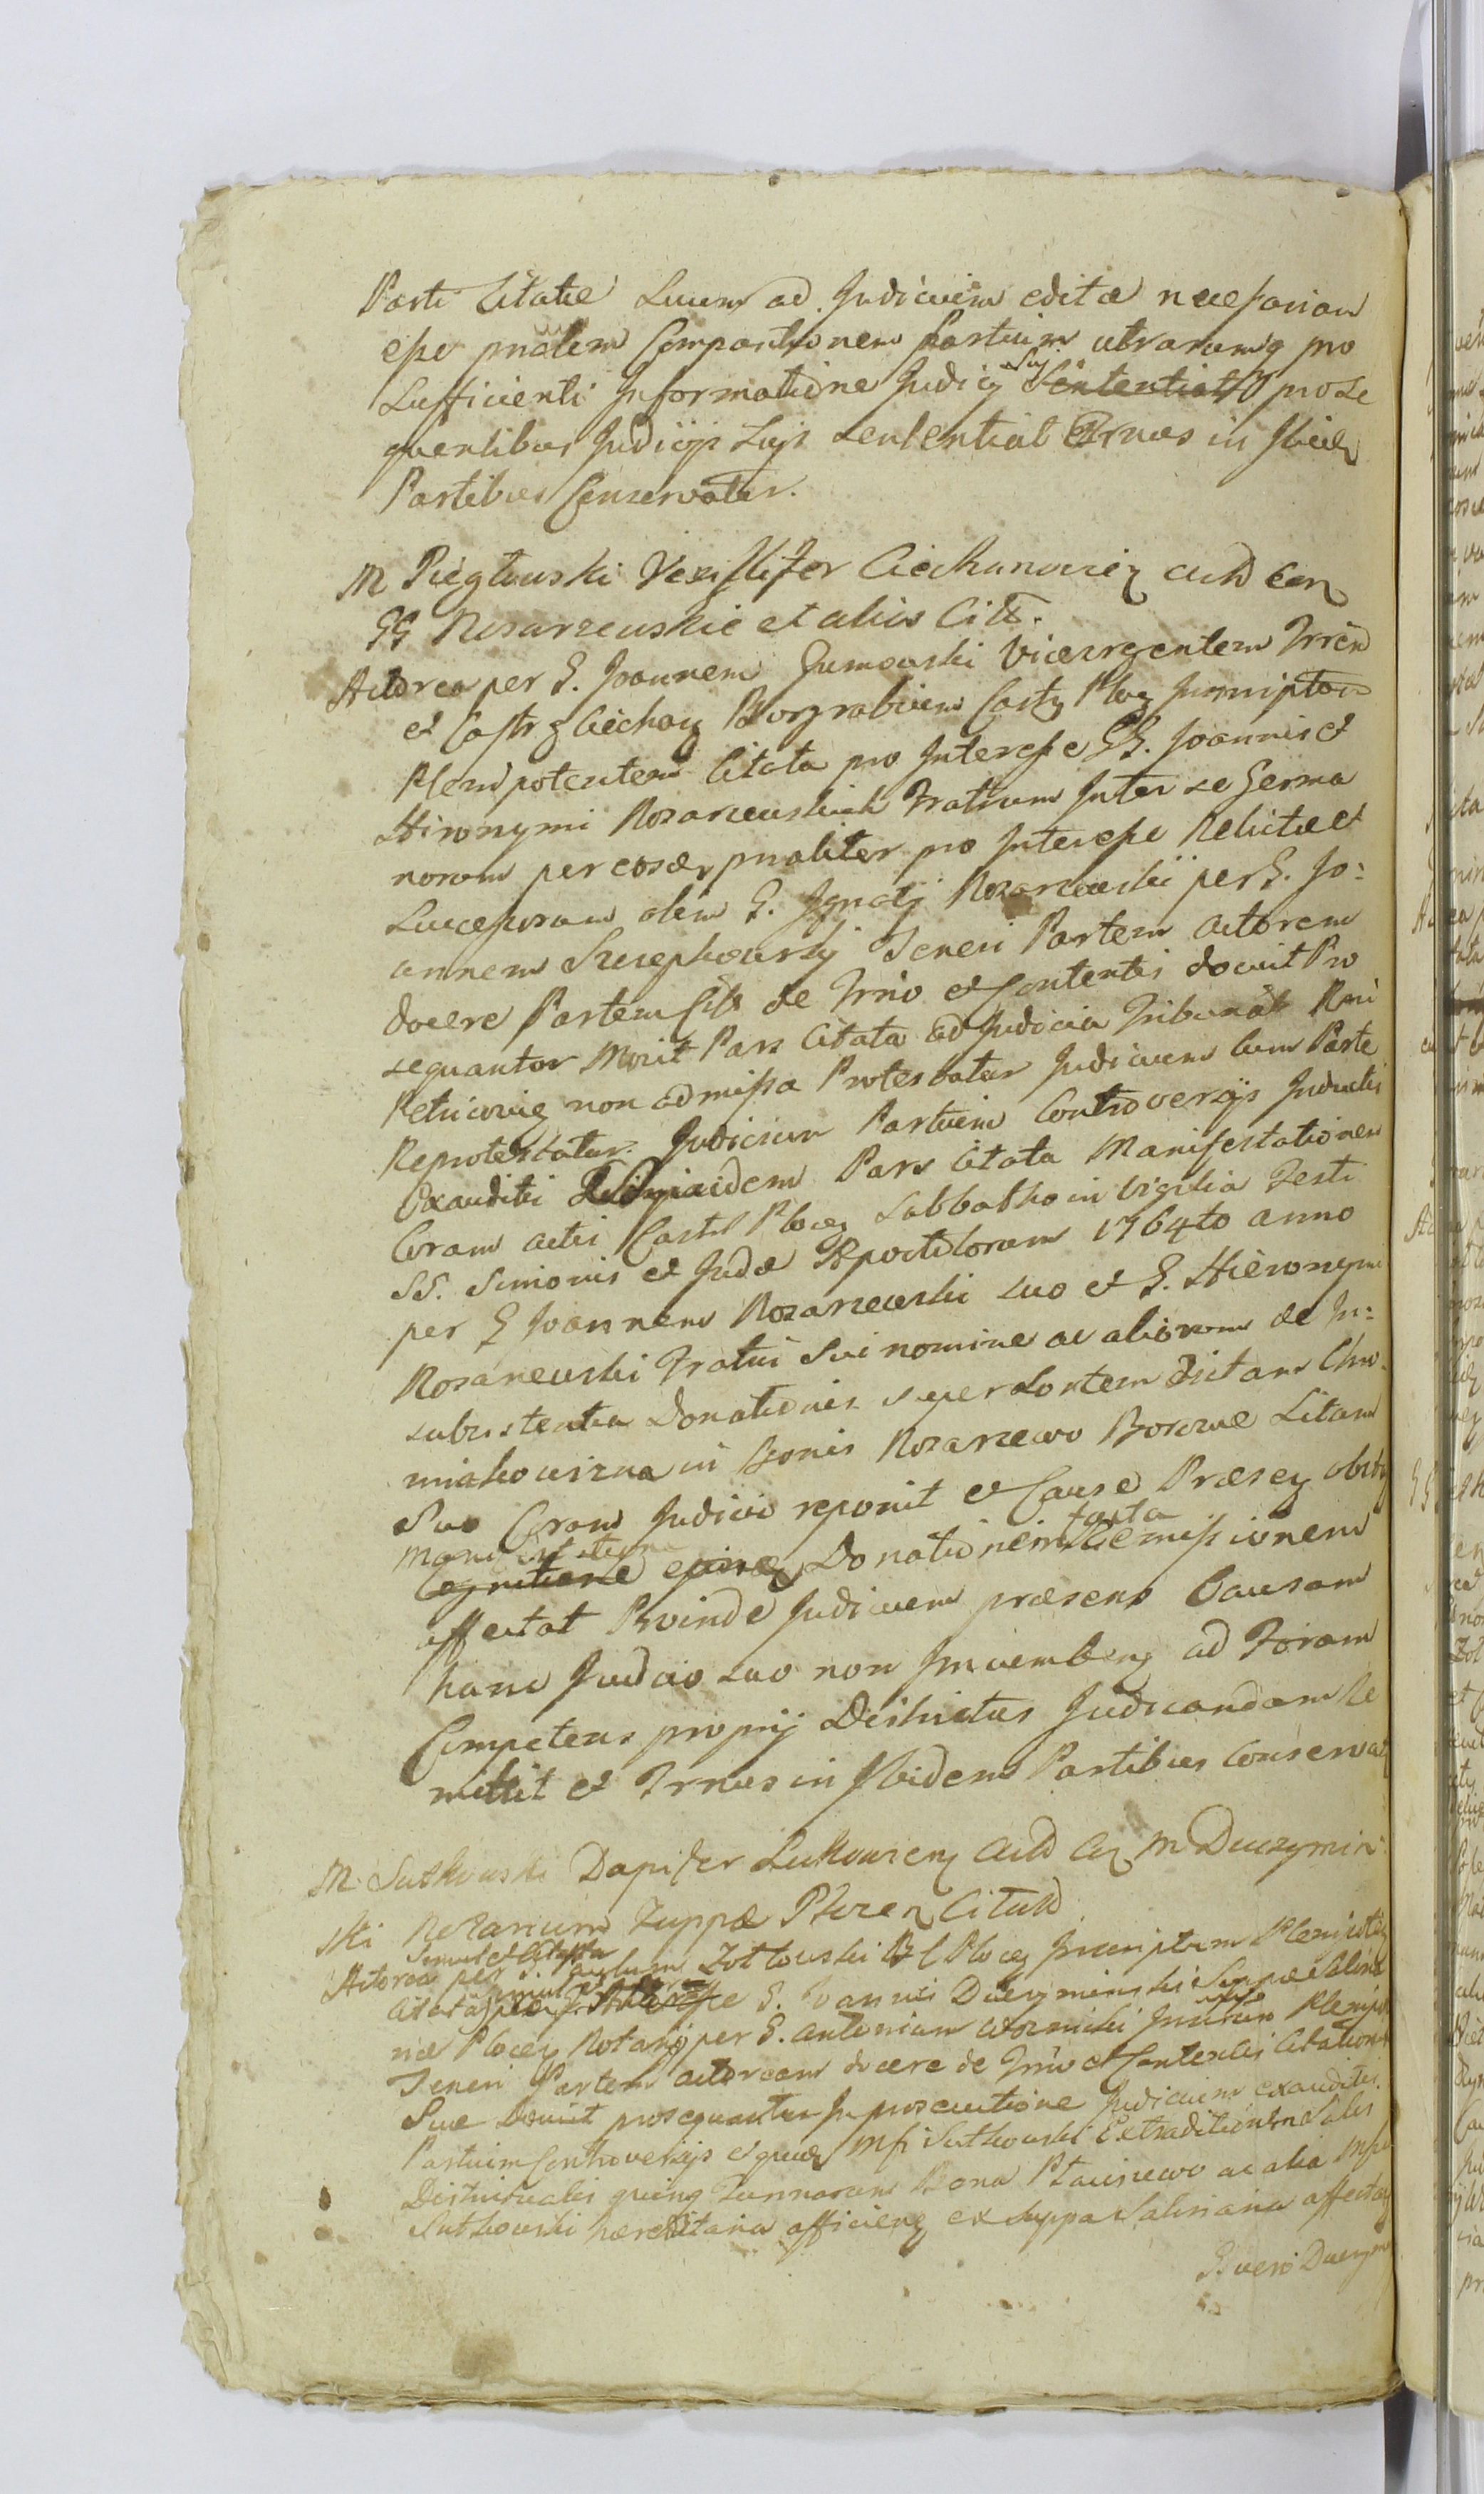 Parti Citatae Suum ad Judicium editae necessariam
esse pnalem Comportionem Partium utrarumq pro
Sufficienti Informatione Judicij Suj Sententiat pro se
quentibus Judicijs Sujs sententiat Trnus in Ibid
Partibus Conservatur.
M Pieglowski Vexillifer Ciechanovien Actor Con
GG Rozarzewskie et alios Citt.
Actorea per G. Joannem Gumowski Vicesregentem Trren
et Castr Ciechan Burgrabium Castr Ploc Inscriptum
Plenipotentem Citata pro Interesse GG. Joannis et
Hieronymi Rozarzewskich Fratrum Inter se Germa
norum per eosdem pnaliter pro Interesse Relictae et
Succesorum olim G. Ignatij Rozarzewskii per G. Jo:
annem Szczepkowskij Teneri Partem Actorem
docere Partem Citt de Trnio et Contentis docuit Pro
sequantur Movit Pars Citata ad Judicia Tribunalt Rni
Petricovien non admissa Protestatur Judicium cum Parte
Reprotestatur. Judicium Partium Controversijs Inductis
Exauditis Pars Citata Manifestationem
Coram actis Castr Plocen Sabbatho in Vigilia Festi
SS. Simonis et Judae Apostolorum 1764to anno
per G Joannem Rozarzewski suo et G. Hieronymi
Rozarzewski Fratris Sui nomine ac aliorum de In:
subsistentia Donationis super Sortem dictam Chro
miakowizna in Bonis Rozarzewo Borowe Litam
Suo Coram Judicio reponit et Causae Praesen
Cognitione ejusdem Donationem facta Remissionem
affectat Proinde Judicium praesens Causam
hanc Judicio suo non Incumben ad Forum
Competens proprij Districtus Judicandam Re
mittit et Trnus in Ibidem Partibus Conservat
M. Sutkowski Dapifer Lukovien Actor Con M Duczymin
ski Notarium Zuppae Plocen Citatum
Actorea per G. Paulum Zotlowski B C Plocen Inscriptum Plenipoten
Citata G. Joannis Duczyminski Suppae Salina
riae Plocen Notarij per G. Antonium Plenipo
Teneri Partem Actoream docere de Trnio et Contentis Citationis
Suae Docuit prosequantur In prosecutione Judicium exauditis
Partium Controversijs Mfi Sutkowski Extraditionem Salis
Districtualis quinq Tunnarum Bona Ptaucewo ac alia Mfi
Sutkowski haereditaria afficien ex Suppa Salinaria affectan
G vero Duczym